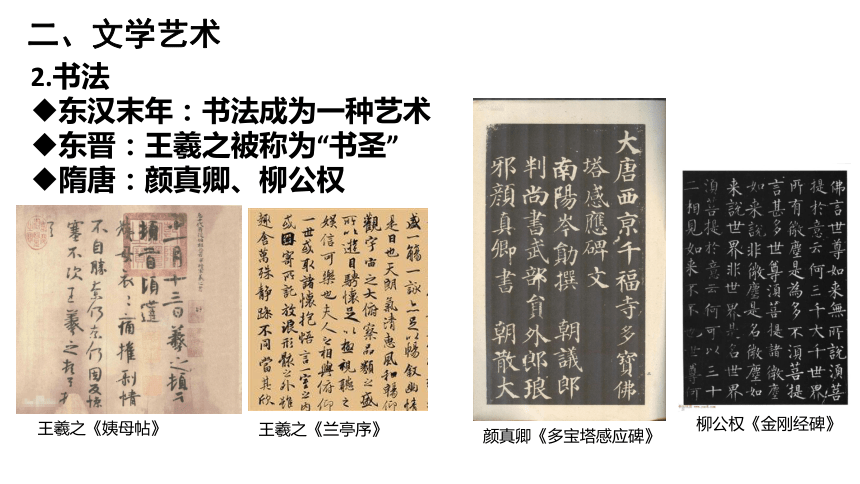 二、文学艺术
2.书法
◆东汉末年：书法成为一种艺术
◆东晋：王羲之被称为“书圣”
◆隋唐：颜真卿、柳公权
十一月十三日羲之頓首
頓首頃遘
姨母哀哀痛摧剝情
不自勝奈何奈何因反慘
塞不次王羲之頓首頓首
盛一觴一詠亦足以暢叙幽情
是日也天朗氣清惠風和暢仰
觀宇宙之大俯察品類之盛
所以遊目騁懷足以極視聽之
娱信可樂也夫人之相與俯仰
一世或取諸懷抱悟言一室之内
或因寄所託放浪形骸之外雖
趣舍萬殊静躁不同當其欣
大唐西京千福寺多寶佛
塔感應碑文
南陽岑勛撰 朝議郎
判尚書武部員外郎琅
邪顔真卿書 朝散大
佛言世尊如来無所說須菩
提於意云何三千大千世界
所有微塵是為多不須菩提
言甚多世尊須菩提諸微塵
如来說非微塵是名微塵如
来說世界非世界是名世界
須菩提於意云何可以三十
二相見如来不不也世尊何
王羲之《姨母帖》
王羲之《兰亭序》
颜真卿《多宝塔感应碑》
柳公权《金刚经碑》